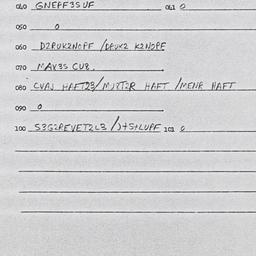 040 GNEPF3SUF 041 0
050 0
060 D2RUK2NOPF /DRUK2 K2NOPF
070 MAV3S CU8.
080 CVAJ HAFT23/MJXT2R HAFT /MENR HAFT
090 0
100 S3G2REVET2L3 /J+S+LUPF 101 0